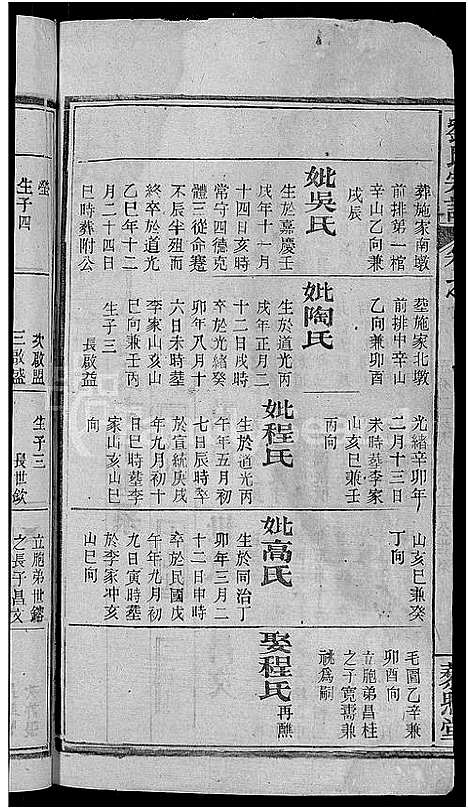 葬施家南墩
前排第一棺
辛山乙向兼
戌辰
妣吳氏
生於嘉慶壬
戌年十一月
十四日亥時
常守四德克
體三從命蹇
不辰半殂而
終卒於道光
乙巳年十二
月二十四日
巳時葬附公
塋
生子四
塟施家北墩
前排中辛山
乙向兼卯酉
妣陶氏
生於道光丙
戌年正月二
十二日戌時
卒於光緒癸
卯年八月十
六日未時塟
李家山亥山
巳向兼壬丙
生子三
長啟益
次啟盟
三啟盛
光緒辛卯年
二月十三日
未時塟李家
山亥巳兼壬
丙向
妣程氏
生於道光丙
午年五月初
七日辰時卒
於宣統庚戌
年九月初十
日巳時塟李
家山亥山巳
向
生子三
長世欽
山亥巳兼癸
丁向
妣高氏
生於同治丁
卯年三月二
十二日申時
卒於民國戊
午年九月初
九日寅時塟
於李家冲亥
山巳向
立胞弟世鎔
之長子昌文
毛園乙辛兼
卯酉向
立胞弟昌桂
之子寬燾兼
祧爲嗣
娶程氏 再醮